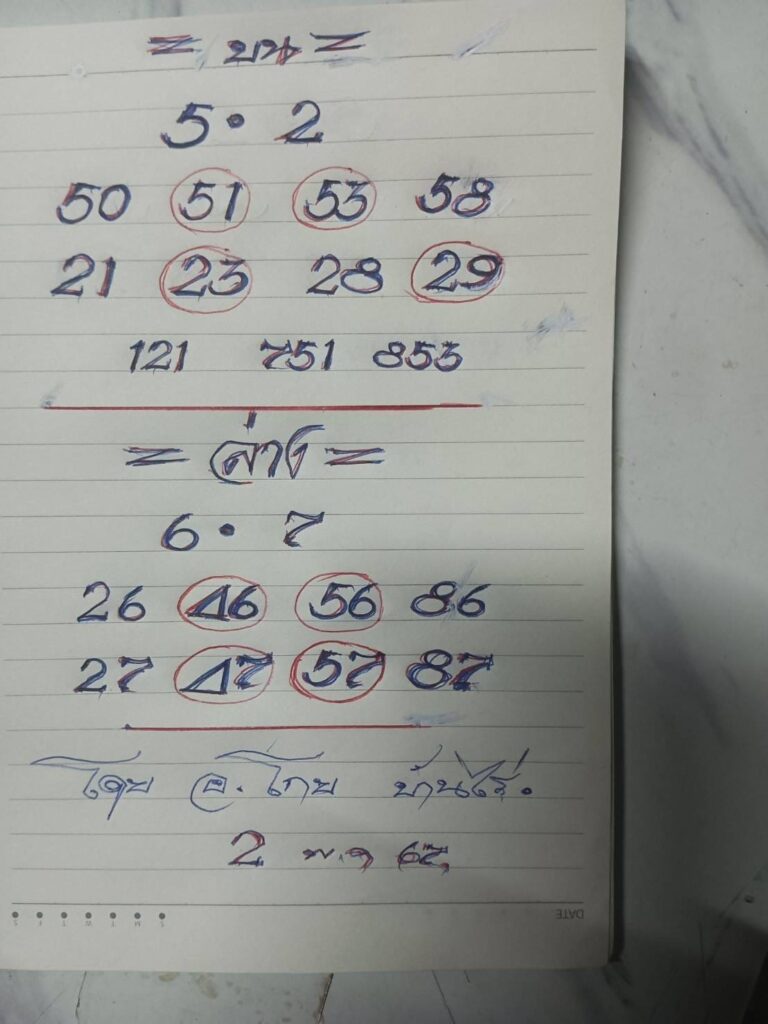 = บน =
5 • 2
50 51 53 58
21 23 28 29
121 751 853
= ล่าง =
6 • 7
26 46 56 86
27 47 57 87
โดย อ. โกย บ้านไร่.
2 พ.ค 67
DATE
S M T W T F S